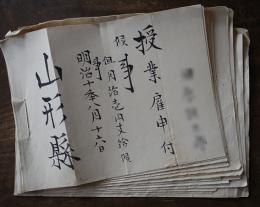 授業雇申付
候事
但月給壱円支給候
事
明治十年八月十六日
山形縣